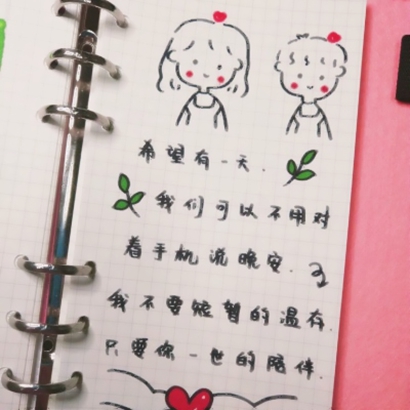 希望有一天.
我们可以不用对
着手机说晚安.
我不要短暂的温存.
只要你一世的陪伴.